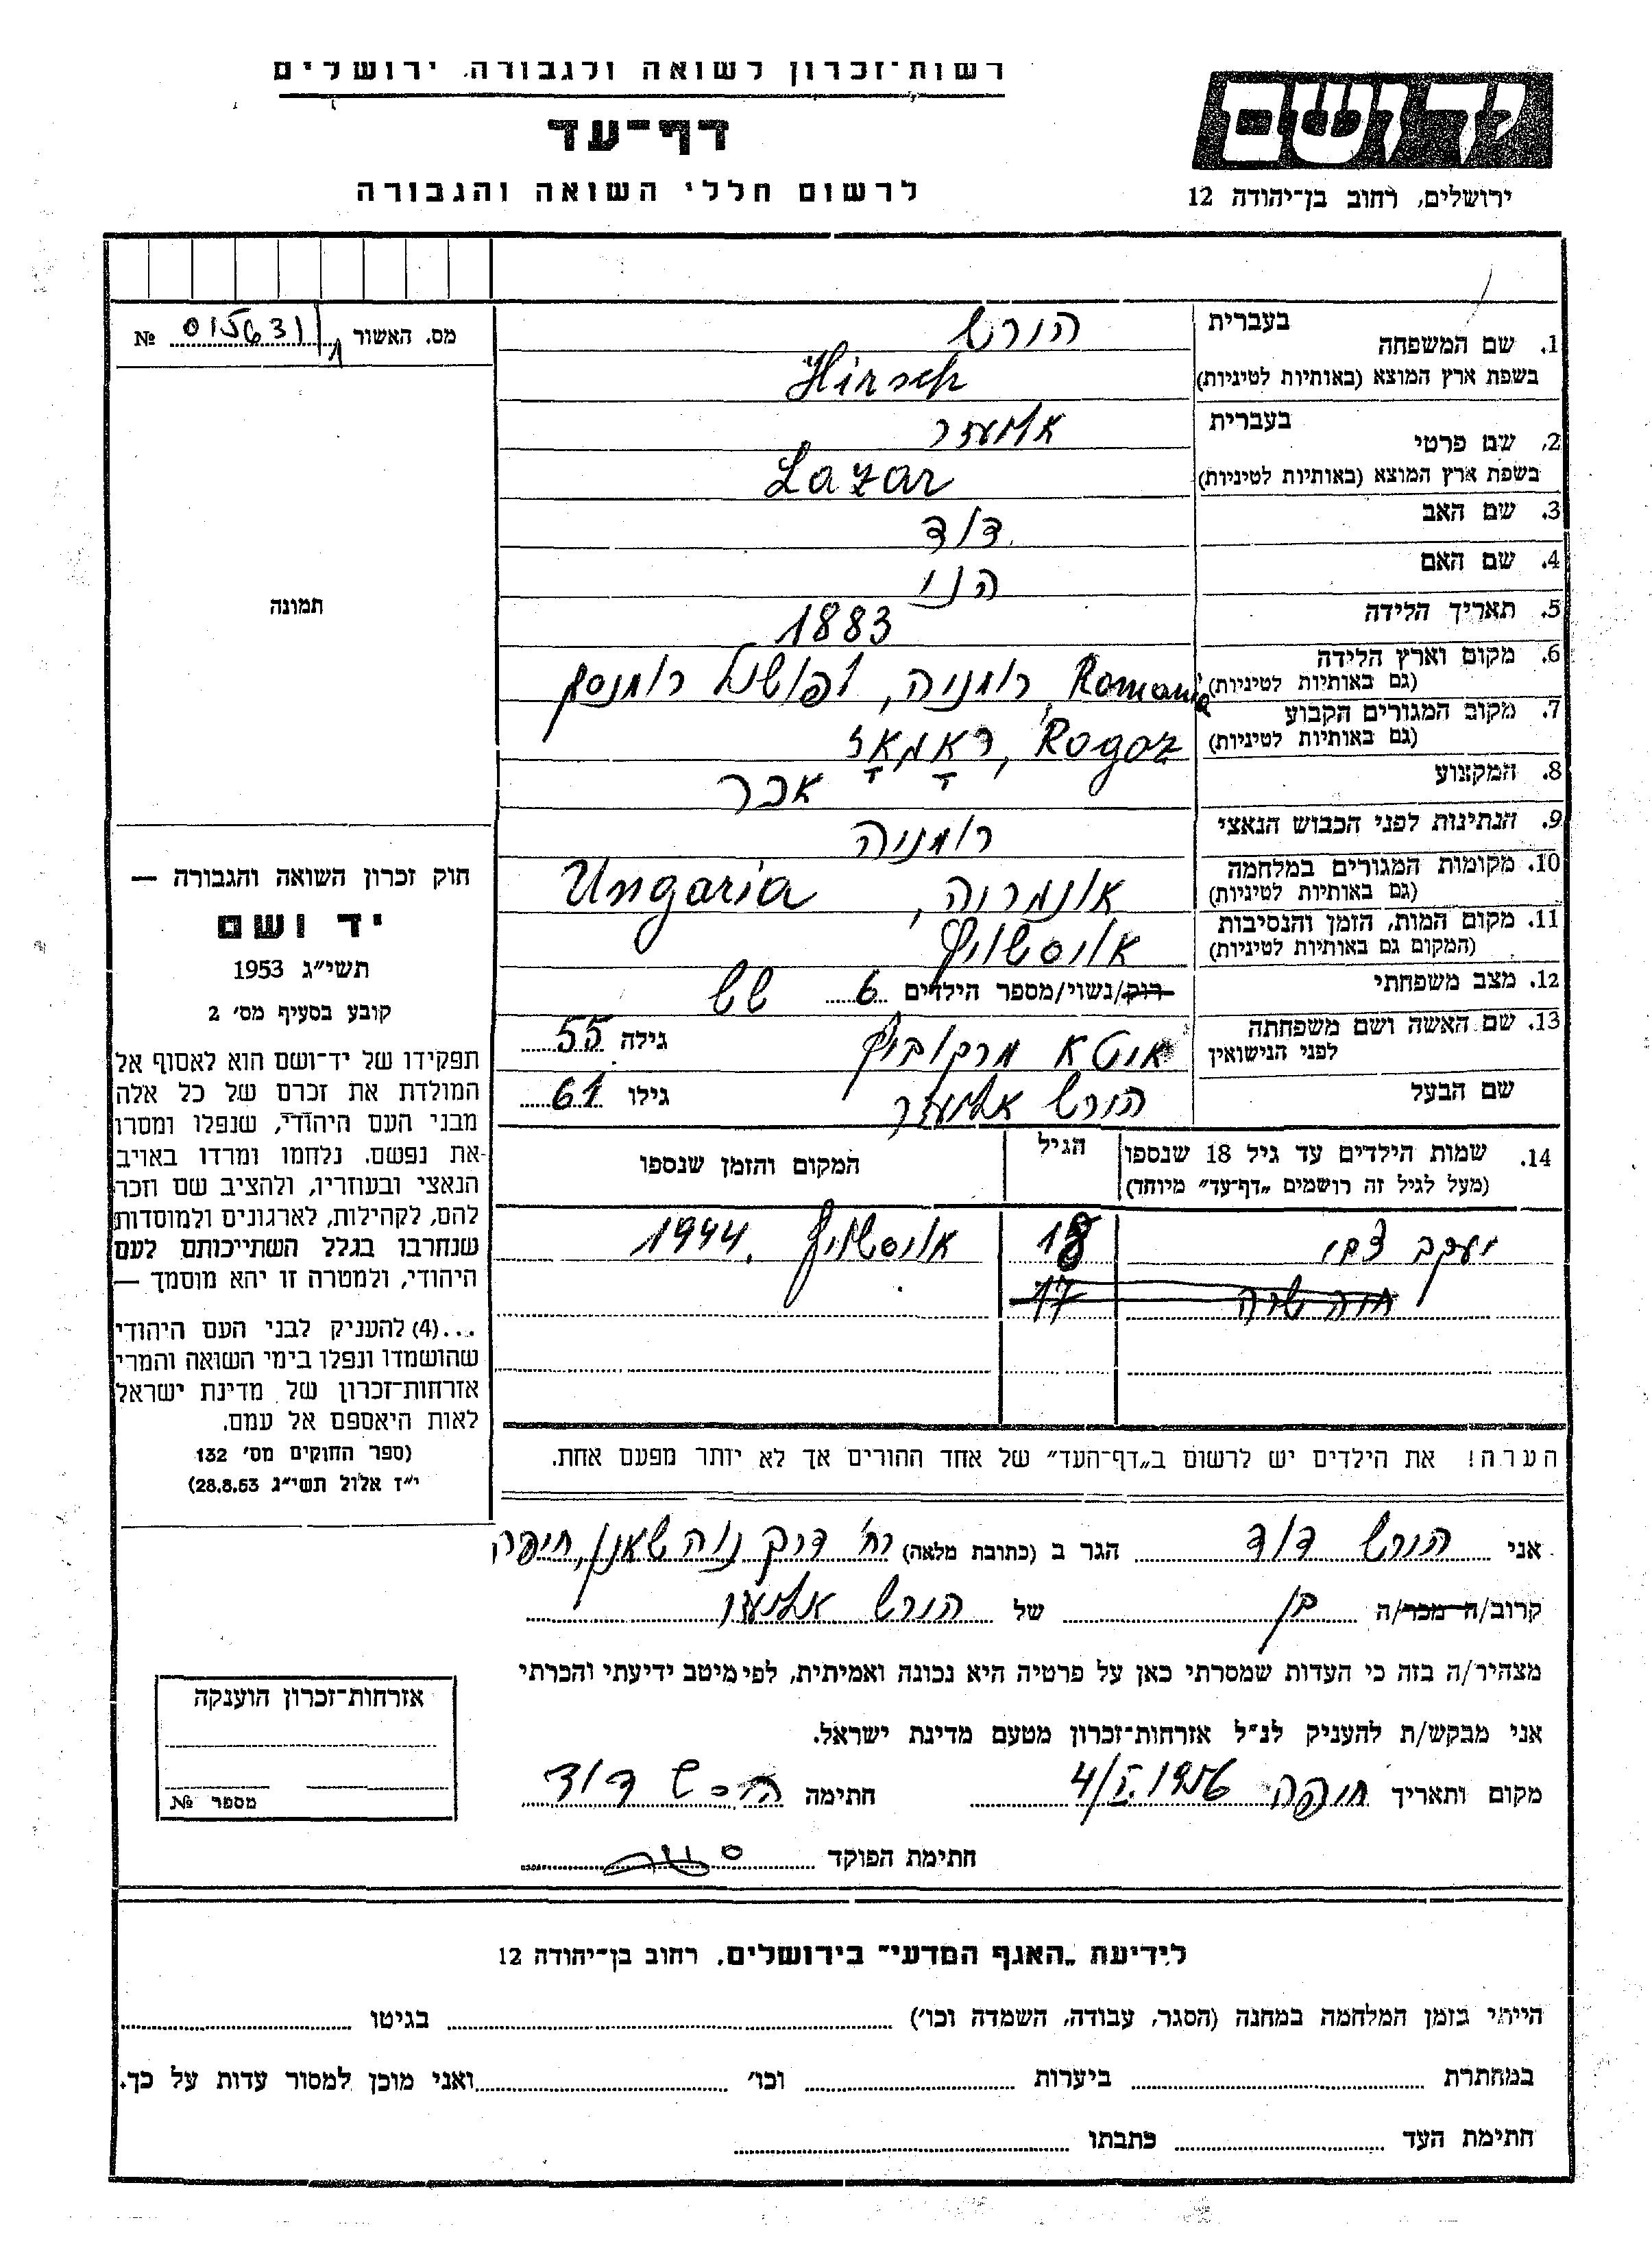 רשות־זכרון לשואה ולגבורה, ירושלים
דף־עד
לרשום חללי השואה והגבורה
יד ושם
ירושלים, רחוב בן־יהודה 12
מס. האשור 015631/1 №
תמונה
1. שם המשפחה
בעברית הירש
בשפת ארץ המוצא (באותיות לטיניות) Hirsch
2. שם פרטי
בעברית אליעזר
בשפת ארץ המוצא (באותיות לטיניות) Lazar
3. שם האב דוד
4. שם האם הני
5. תאריך הלידה 1883
6. מקום וארץ הלידה
(גם באותיות לטיניות) Romania רומניה,
7. מקום המגורים הקבוע
(גם באותיות לטיניות) Rogoz, ראָגאָז
8. המקצוע אכר
9. הנתינות לפני הכבוש הנאצי רומניה
10. מקומות המגורים במלחמה
(גם באותיות לטיניות) אונגריה, Ungaria
11. מקום המות, הזמן והנסיבות
(המקום גם באותיות לטיניות) אויסשויץ
12. מצב משפחתי רוק/נשוי/מספר הילדים 6 שש
13. שם האשה ושם משפחתה
לפני הנישואין מרקוביץ גילה 55
שם הבעל הירש אליעזר גילו 61
14. שמות הילדים עד גיל 18 שנספו
(מעל לגיל זה רושמים "דף־עד" מיוחד)
הגיל
המקום והזמן שנספו
יעקב צבי 18 אויסשויץ, 1944
חיה שרה 17
הערה! את הילדים יש לרשום ב"דף־העד" של אחד ההורים אך לא יותר מפעם אחת.
חוק זכרון השואה והגבורה —
יד ושם
תשי"ג 1953
קובע בסעיף מס' 2
תפקידו של יד־ושם הוא לאסוף אל
המולדת את זכרם של כל אלה
מבני העם היהודי, שנפלו ומסרו
את נפשם, נלחמו ומרדו באויב
הנאצי ובעוזריו, ולהציב שם וזכר
להם, לקהילות, לארגונים ולמוסדות
שנחרבו בגלל השתייכותם לעם
היהודי, ולמטרה זו יהא מוסמך —
...(4) להעניק לבני העם היהודי
שהושמדו ונפלו בימי השואה והמרי
אזרחות־זכרון של מדינת ישראל
לאות היאספם אל עמם.
(ספר החוקים מס' 132
י"ז אלול תשי"ג 28.8.53)
אני הירש דוד הגר ב (כתובת מלאה) רח' דרך נוה שאנן, חיפה
קרוב/ה מכר/ה בן של הירש אליעזר
מצהיר/ה בזה כי העדות שמסרתי כאן על פרטיה היא נכונה ואמיתית, לפי מיטב ידיעתי והכרתי
אני מבקש/ת להעניק לנ"ל אזרחות־זכרון מטעם מדינת ישראל.
מקום ותאריך חיפה 4/I.1956 חתימה הירש דוד
חתימת הפוקד
אזרחות־זכרון הוענקה
מספר №
לידיעת "האגף המדעי" בירושלים, רחוב בן־יהודה 12
הייתי בזמן המלחמה במחנה (הסגר, עבודה, השמדה וכו') בגיטו
במחתרת ביערות וכו' ואני מוכן למסור עדות על כך.
חתימת העד כתבתו